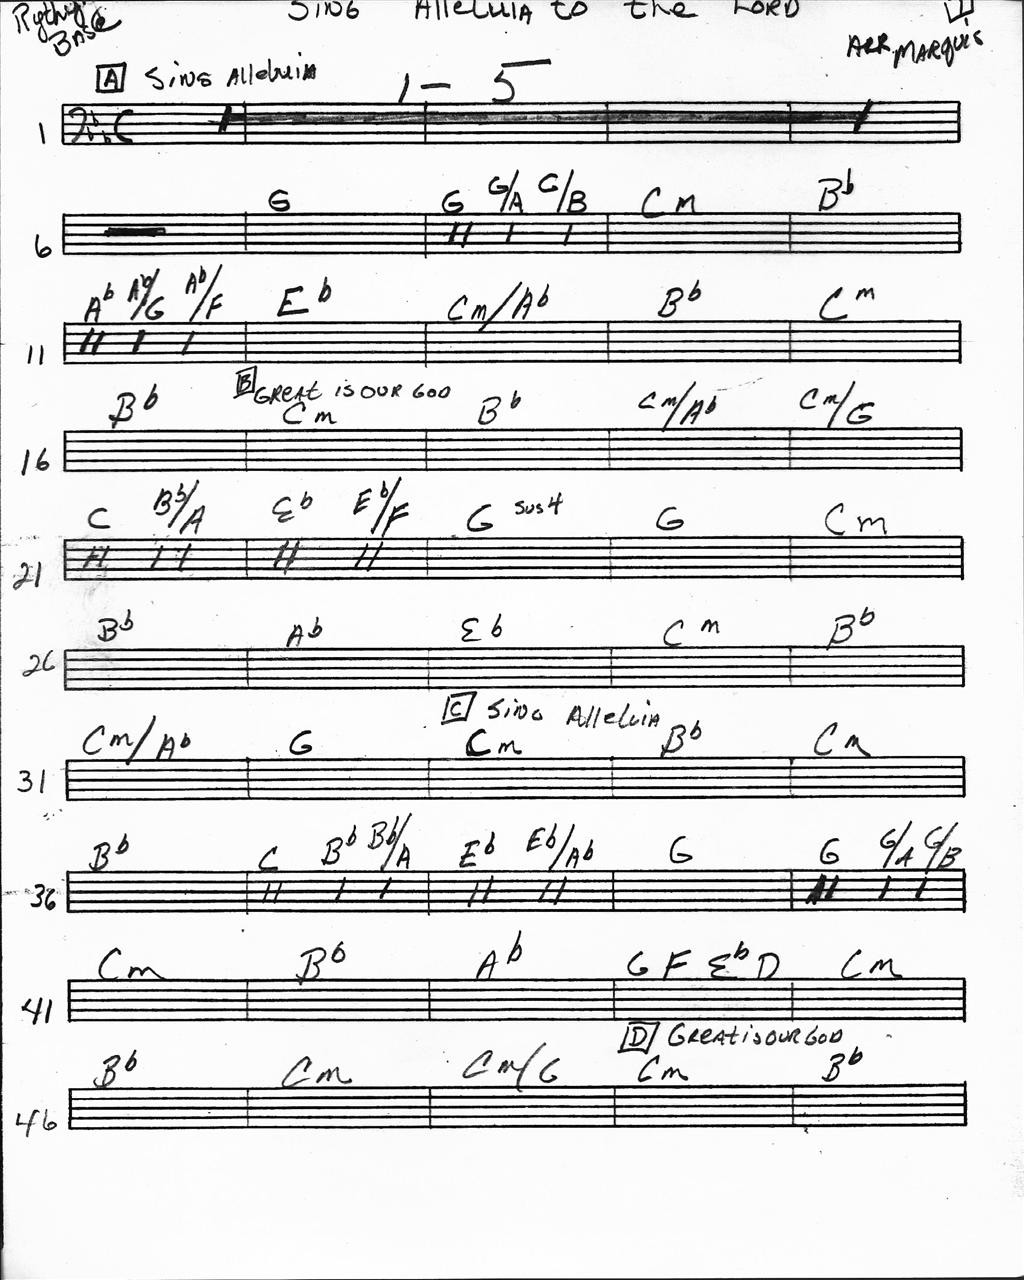 Rythm
Base
Sing Alleluia to the Lord
Arr Marquis
A Sing Alleluia
1 – 5
1
G G G/A G/B Cm Bb
6
Ab Ab/G Ab/F Eb Cm/Ab Bb Cm
11
B Great is our God
Bb Cm Bb Cm/Ab Cm/G
16
C Bb/A Eb Eb/F G sus4 G Cm
21
Bb Ab Eb Cm Bb
26
C Sing Alleluia
Cm/Ab G Cm Bb Cm
31
Bb C Bb Bb/A Eb Eb/Ab G G G/A G/B
36
Cm Bb Ab G F Eb D Cm
41
D Great is our God
Bb Cm Cm/G Cm Bb
46